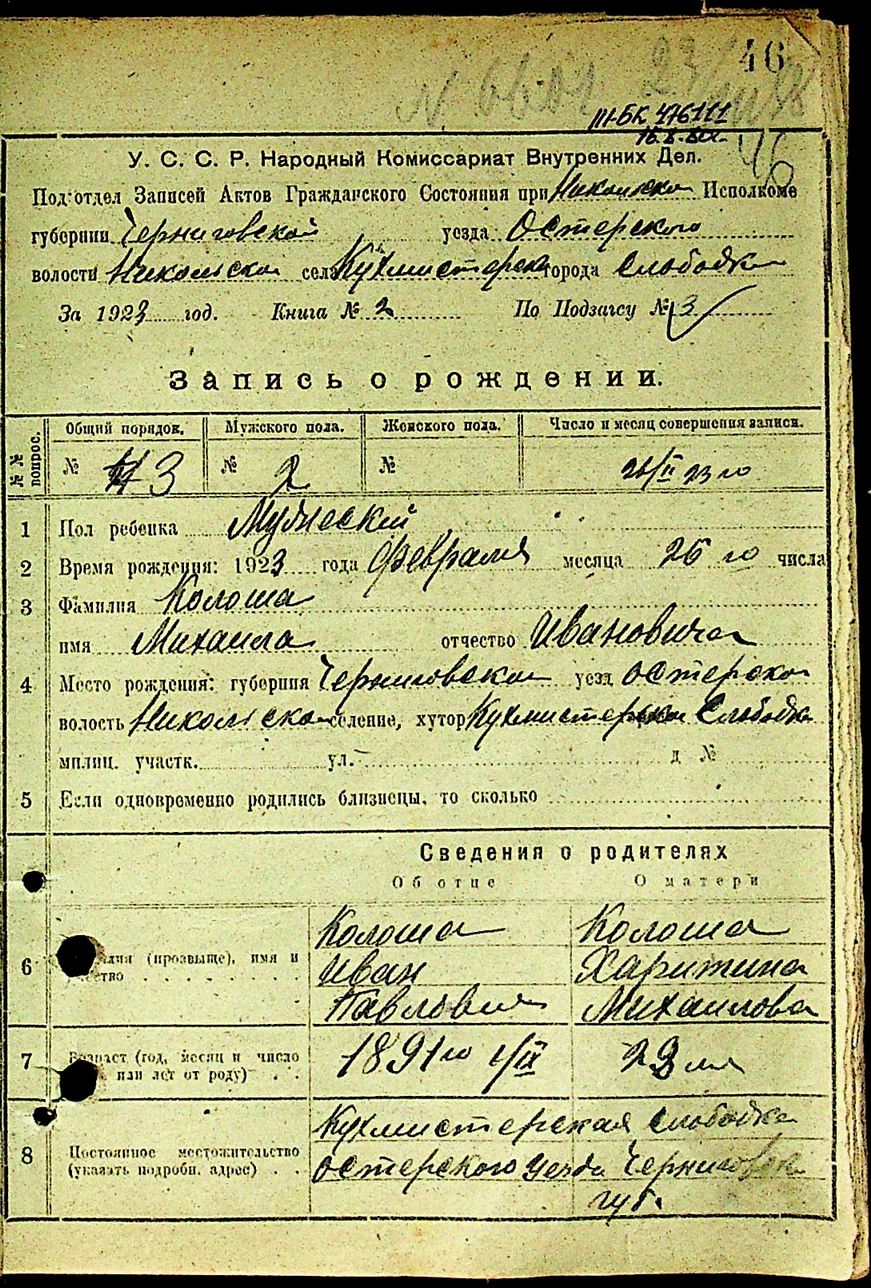 46
N 6601 23/
III-БК 476111
46
У. С. С. Р. Народный Комиссариат Внутренних Дел.
Подотдел Записей Актов Гражданского Состояния при Никольском Исполкоме
губернии Черниговской уезда Остерского
волости Никольской села Кухмистерской города Слободки
За 1923 год. Книга № 2 По Подзагсу № 3
Запись о рождении.
№№ вопрос. Общий порядок. Мужского пола. Женского пола. Число и месяц совершения записи.
№ 3 № 2 № 26/II 23 го
1 Пол ребенка Мужеской
2 Время рождения: 1923 года февраля месяца 26 го числа
3 Фамилия Колоша
имя Михаила отчество Ивановича
4 Место рождения: губерния Черниговской уезд Остерско
волость Никольской селение, хутор Кухмистерская Слободка
милиц. участк. ул. д №
5 Если одновременно родились близнецы, то сколько
Сведения о родителях
Об отце О матери
Колоша Колоша
6 (прозвище), имя и Иван Харитина
Павлович Михаилова
7 Возраст (год, месяц и число 1891 го 1/IX 23 лет
или лет от роду)
Кухмистерская Слободка
8 Постоянное местожительство
(указать подробн. адрес) Остерского уезда Черниговской
губ.